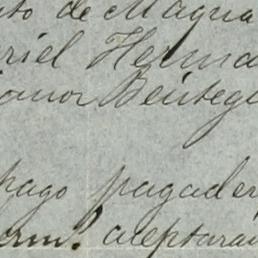 to de Magua
riel Herma
onor Beutege
pago pagader
erm? aceptara